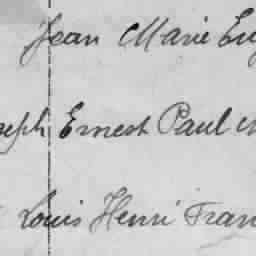 Jean Marie Eu
seph Ernest Paul
Louis Henri Fran